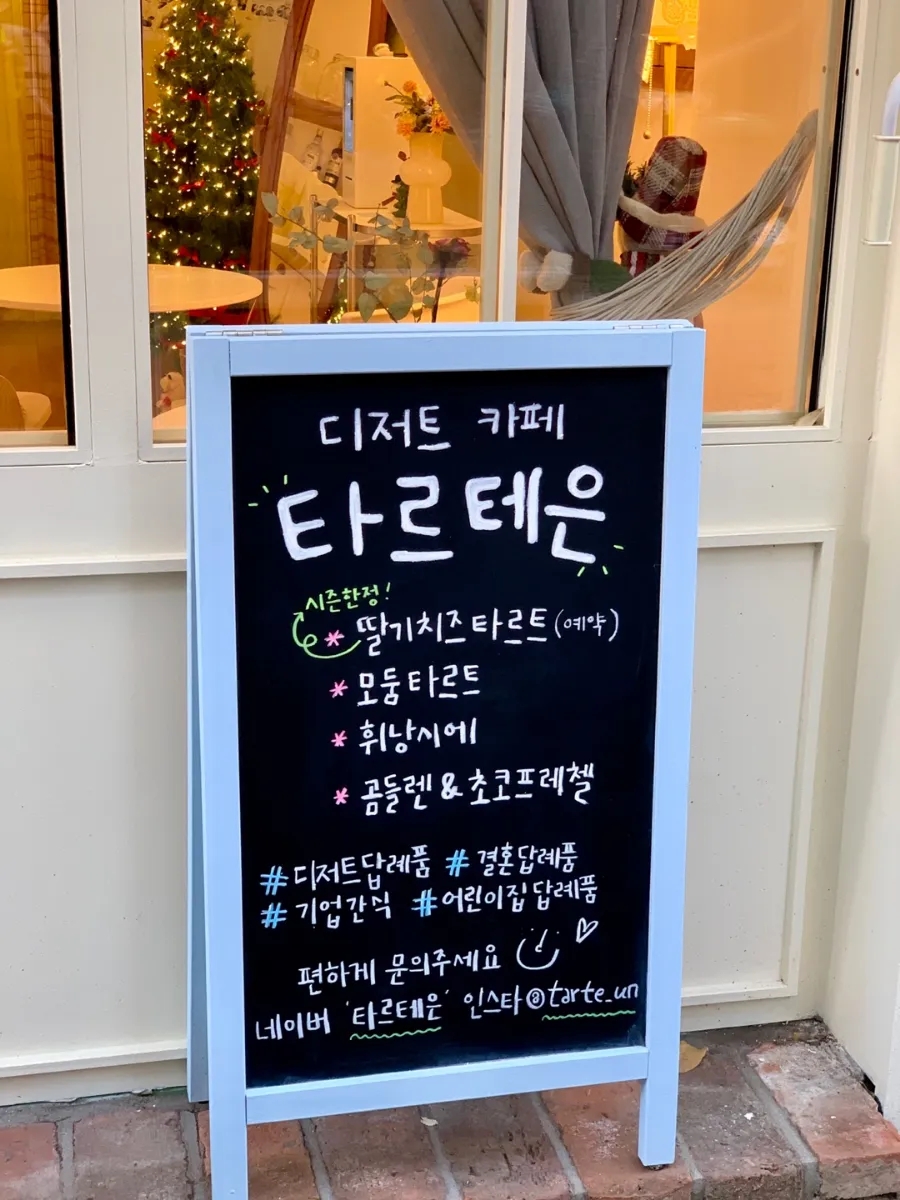 디저트 카페
타르테은
시즌한정!
* 딸기치즈타르트(예약)
* 모둠타르트
* 휘낭시에
* 곰들렌 & 초코프레첼
# 디저트답례품 # 결혼답례품
# 기업간식 # 어린이집답례품
편하게 문의주세요
네이버 '타르테은' 인스타@tarte_un